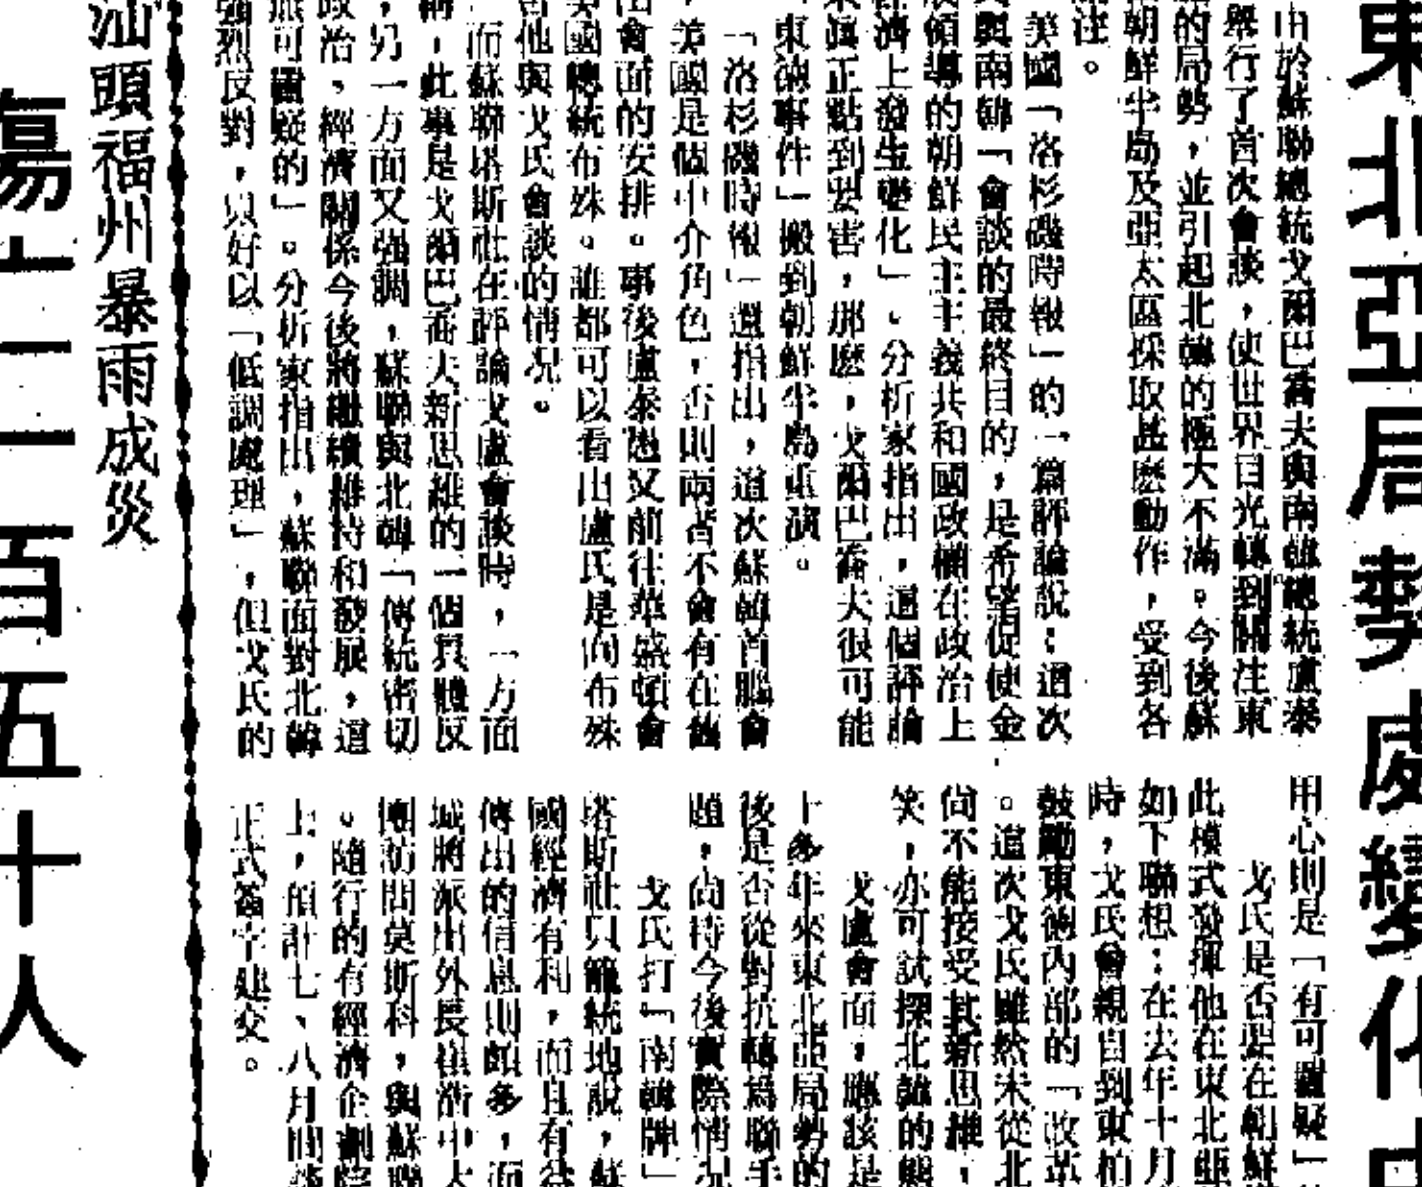 東北亞局勢處變化中
由於蘇聯總統戈爾巴喬夫與南韓總統盧泰
舉行了首次會談，使世界目光轉到關注東
的局勢，並引起北韓的極大不滿。今後蘇
朝鮮半島及亞太區採取甚麼動作，受到各
注。
美國「洛杉磯時報」的一篇評論說：這次
與南韓「會談的最終目的，是希望促使金
領導的朝鮮民主主義共和國政權在政治上
濟上發生變化」。分析家指出，這個評論
真正點到要害，那麼，戈爾巴喬夫很可能
東德事件」搬到朝鮮半島重演。
「洛杉磯時報」還指出，這次蘇韓首腦會
，美國是個中介角色，否則兩者不會有在
會面的安排。事後盧泰愚又前往華盛頓會
美國總統布殊。誰都可以看出盧氏是向布殊
他與戈氏會談的情況。
而蘇聯塔斯社在評論戈盧會談時，一方面
，此事是戈爾巴喬夫新思維的一個具體反
，另一方面又強調，蘇聯與北韓「傳統密切
政治，經濟關係今後將繼續維持和發展，這
無可置疑的」。分析家指出，蘇聯面對北韓
強烈反對，只好以「低調處理」，但戈氏的
用心則是「有可置疑」
戈氏是否要在朝鮮
此模式發揮他在東北亞
如下聯想：在去年十月
時，戈氏曾親自到東柏
鼓勵東德內部的「改革
。這次戈氏雖然未從北
尚不能接受其新思維，
笑，亦可試探北韓的態
戈盧會面，應該是
十多年來東北亞局勢的
後是否從對抗轉為聯手
題，尚待今後實際情況
戈氏打「南韓牌」
塔斯社只籠統地說，蘇
國經濟有利，而且有益
傳出的信息則頗多，而
城將派出外長崔浩中大
團訪問莫斯科，與蘇聯
。隨行的有經濟企劃院
上，預計七、八月間該
正式簽字建交。
汕頭福州暴雨成災
傷亡二百五十人